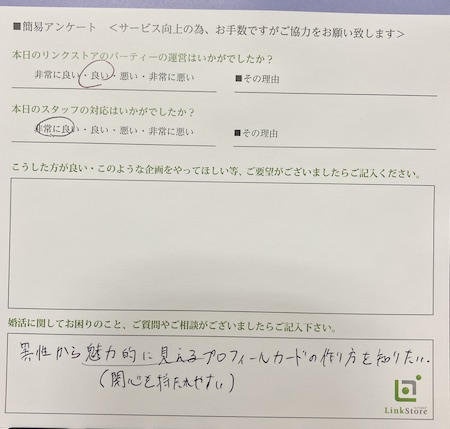 ■簡易アンケート ＜サービス向上の為、お手数ですがご協力をお願い致します＞
本日のリンクストアのパーティーの運営はいかがでしたか？
非常に良い・良い・悪い・非常に悪い ■その理由
本日のスタッフの対応はいかがでしたか？
非常に良い・良い・悪い・非常に悪い ■その理由
こうした方が良い・このような企画をやってほしい等、ご要望がございましたらご記入ください。
婚活に関してお困りのこと、ご質問やご相談がございましたらご記入下さい。
異性から魅力的に見えるプロフィールカードの作り方を知りたい.
(関心を持たれやすい)
LinkStore